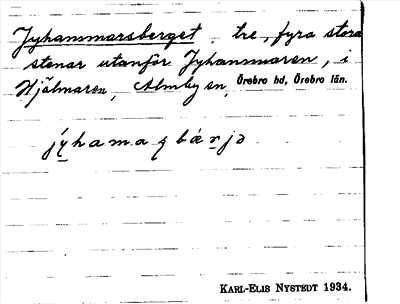 Jyhammarsberget, tre, fyra stora
stenar utanför Jyhammaren, i
Hjälmaren, Almby sn, Örebro hd, Örebro län.
KARL-ELIS NYSTEDT 1934.